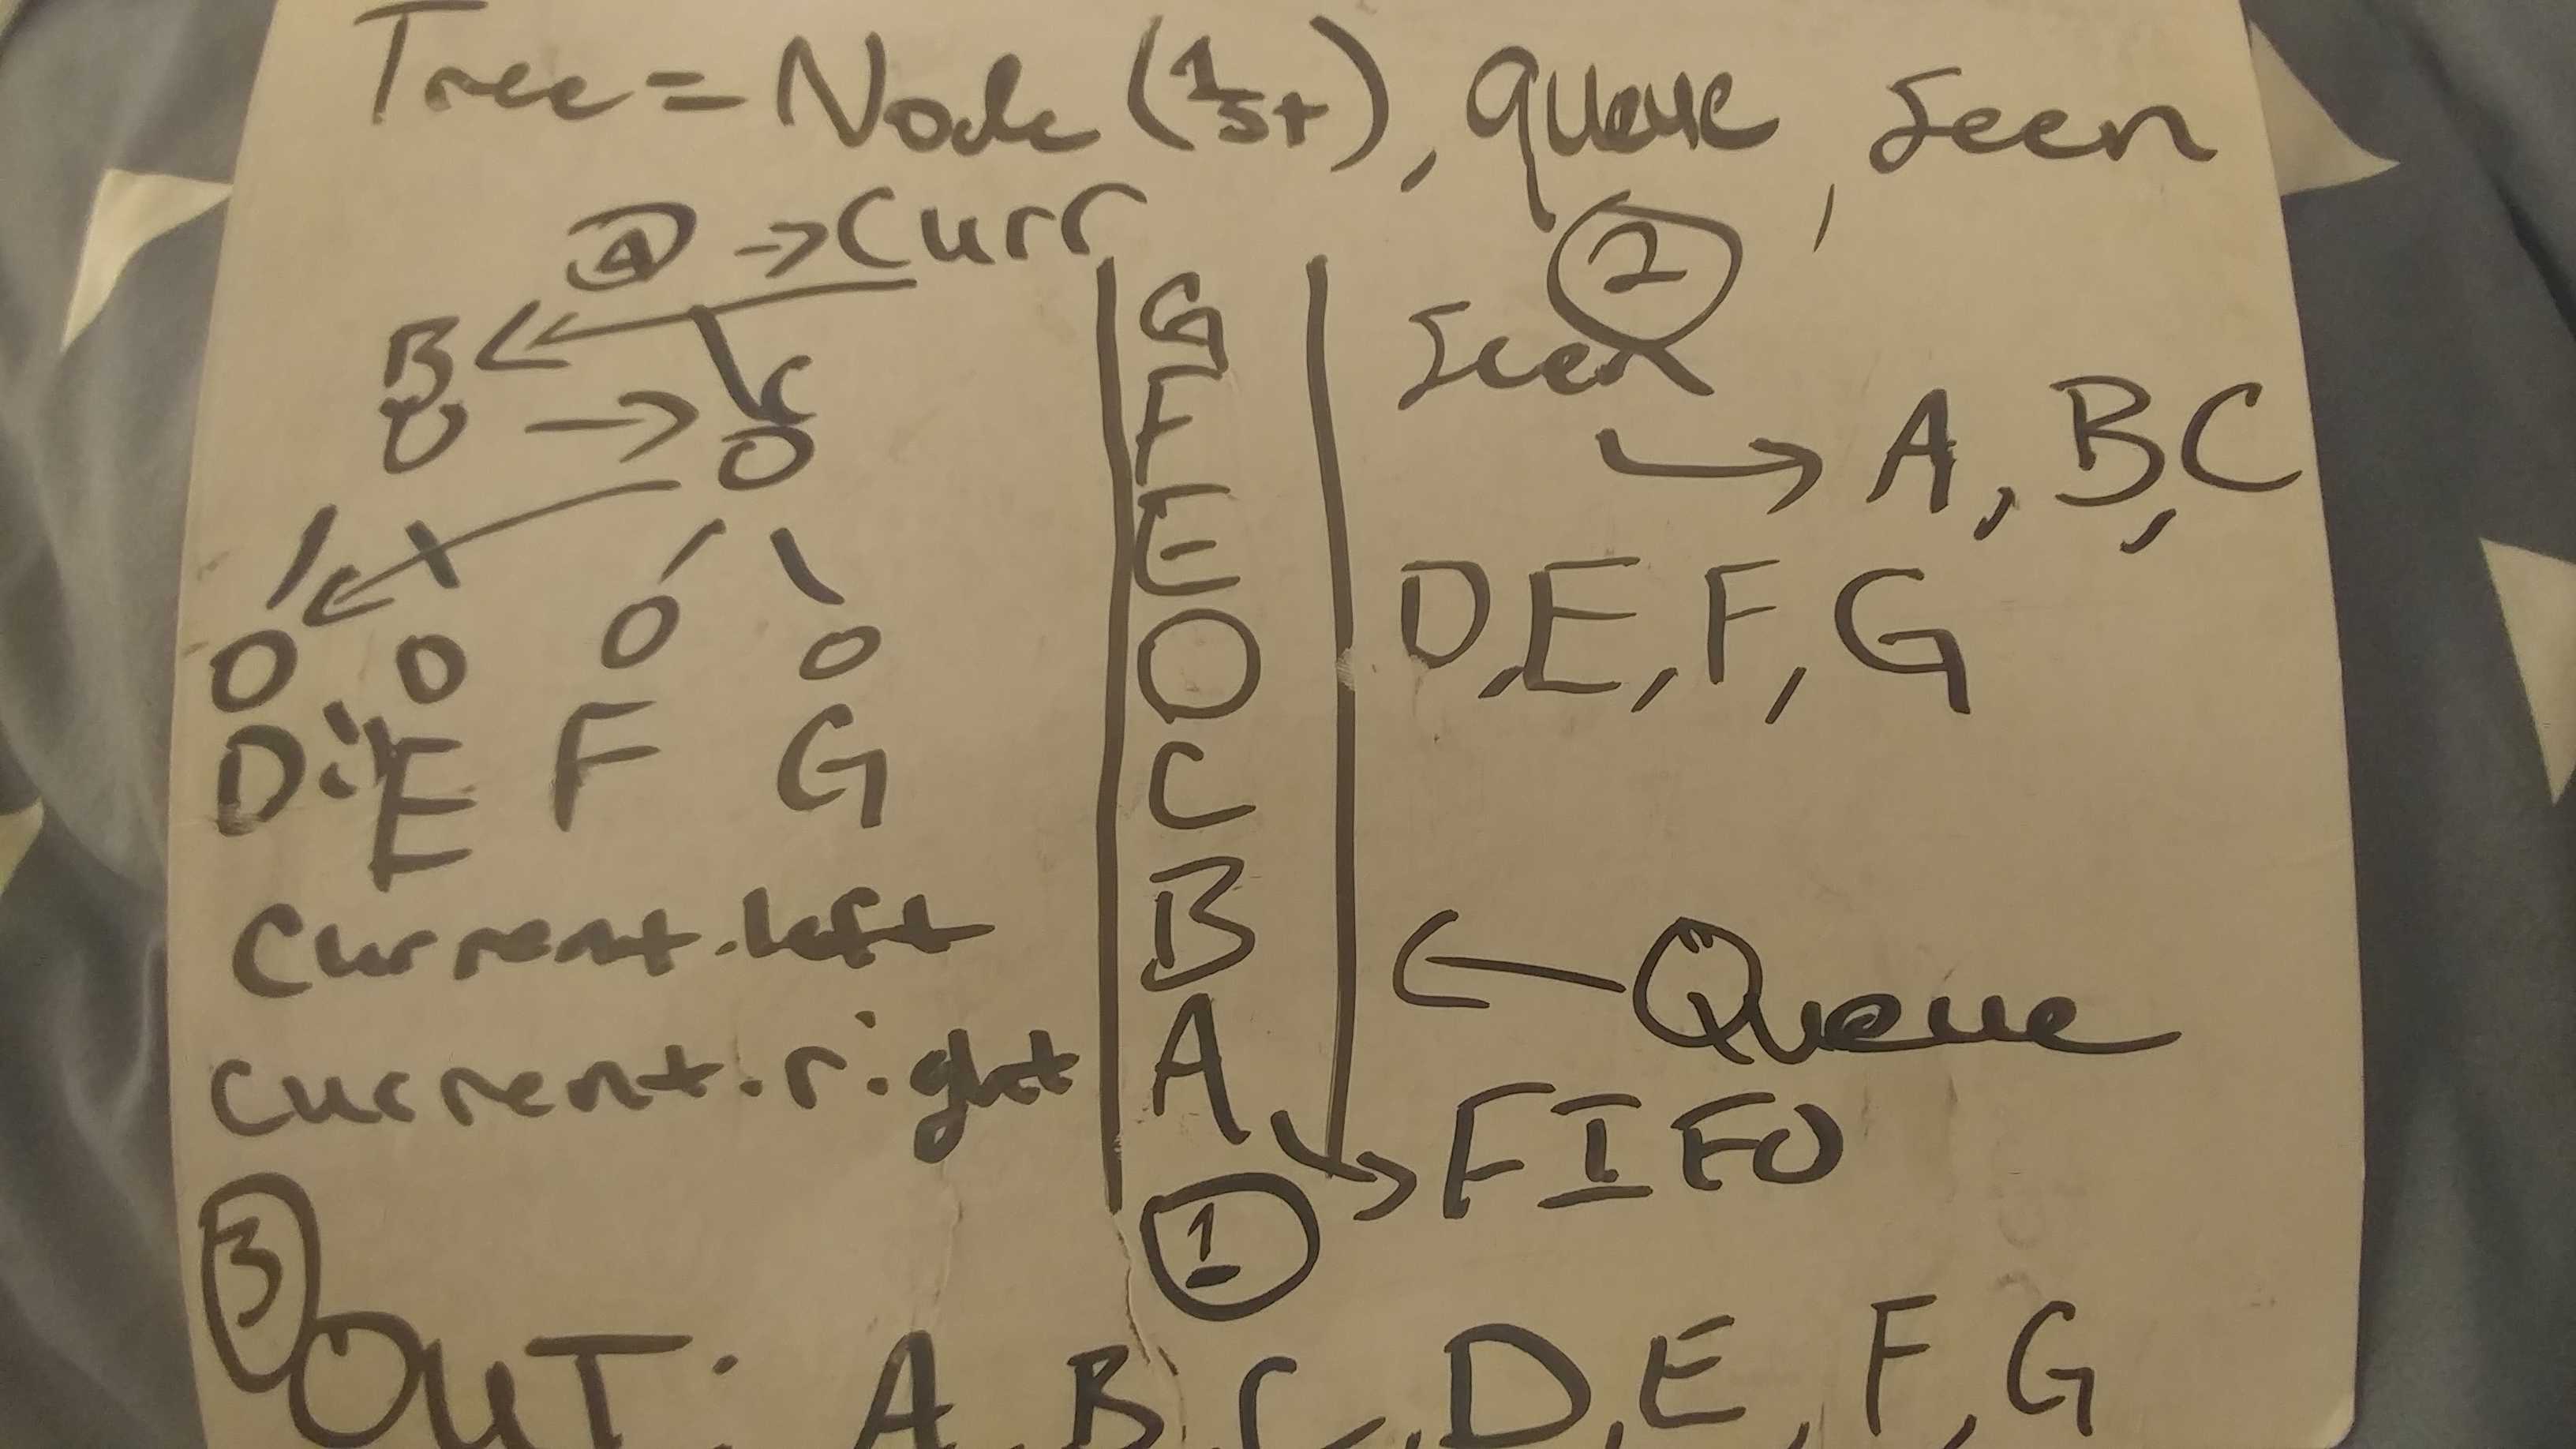 Tree = Node (1st), queue, Seen
A → Curr
B
C
D E F G
E
Current.left
Current.right
G
F
E
O
C
B
A
1
2
Seen
→ A, B, C
D, E, F, G
← Queue
→ FIFO
3
OUT: A, B, C, D, E, F, G